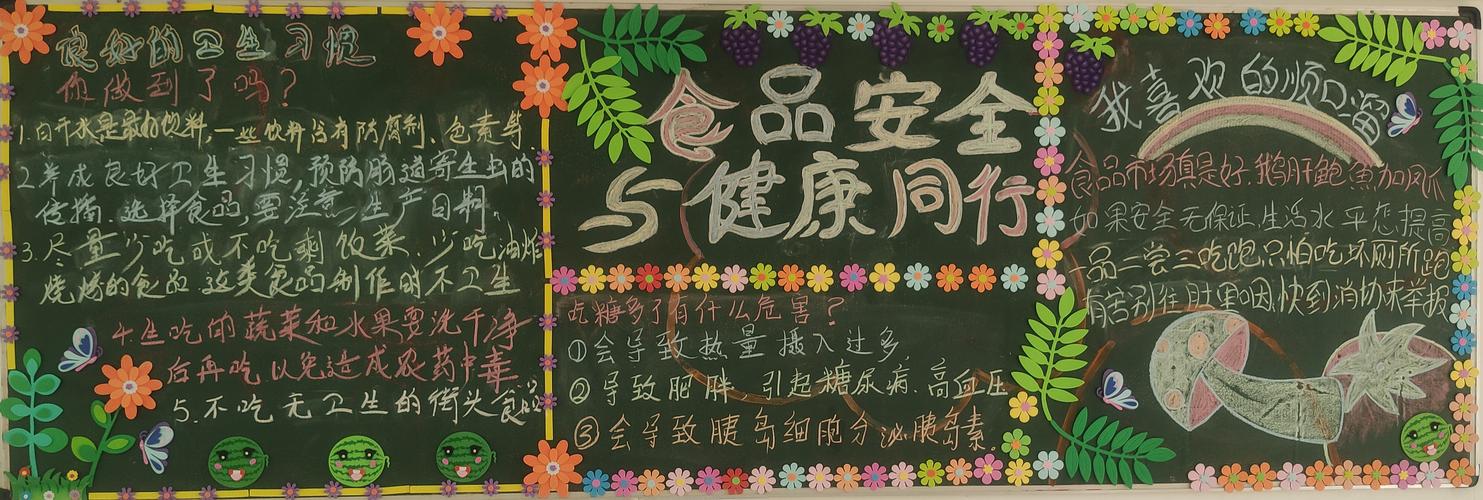 良好的卫生习惯
你做到了吗?
1.白开水是最好饮料,一些饮料含有防腐剂、色素等
2.养成良好卫生习惯,预防肠道寄生虫的
传播.选择食品,要注意生产日期.
3.尽量少吃或不吃剩饭菜、少吃油炸
烧烤的食品.这类食品制作时不卫生
4.生吃的蔬菜和水果要洗干净
后再吃以免造成农药中毒
5.不吃无卫生的街头食品
食品安全
与健康同行
吃糖多了有什么危害?
①会导致热量摄入过多,
②导致肥胖 引起糖尿病.高血压
③会导致胰岛细胞分泌胰岛素。
我喜欢的顺口溜
食品市场真是好.鹅肝鲍鱼加风爪
如果安全无保证.生活水平怎提高
一品二尝三吃跑.只怕吃坏厕所跑
有苦别往肚里咽.快到消协来举报